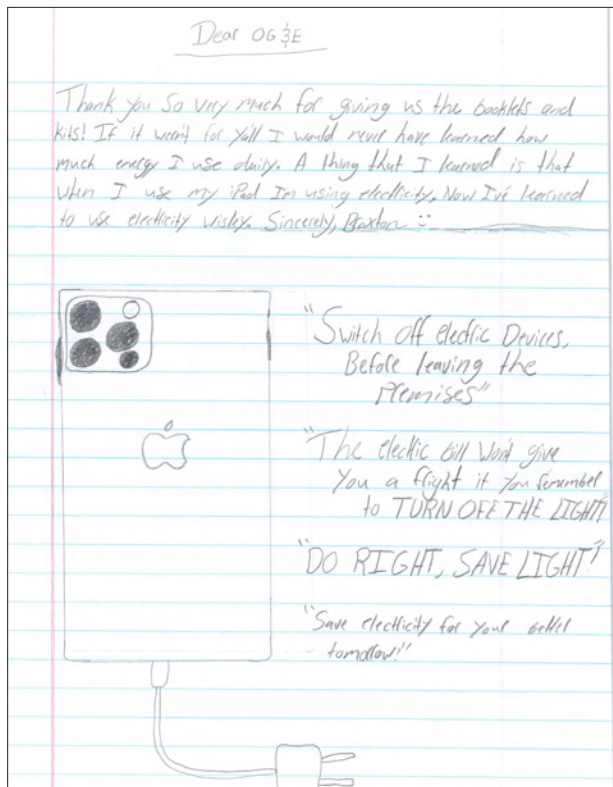 Dear OG&E
Thank you So very much for giving us the booklets and
kits! If it weren't for Yall I would never have learned how
much energy I use daily. A thing that I learned is that
when I use my iPad Im using electricity. Now I've learned
to use electricity wisley. Sincerely, Braxton :)
"Switch off electric Devices,
Before leaving the
Premises"
"The electric bill Won't give
You a fright if you remember
to TURN OFF THE LIGHT!"
"DO RIGHT, SAVE LIGHT!"
"Save electricity for your better
tomorrow!"